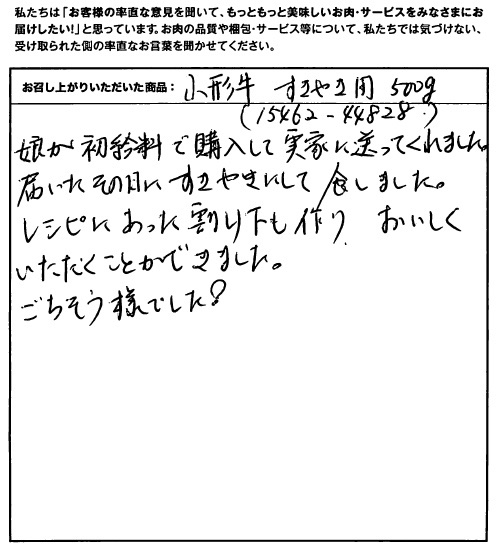 私たちは「お客様の率直な意見を聞いて、もっともっと美味しいお肉・サービスをみなさまにお
届けしたい！」と思っています。お肉の品質や梱包・サービス等について、私たちでは気づけない、
受け取られた側の率直なお言葉を聞かせてください。
お召し上がりいただいた商品： 山形牛 すきやき用 500g
(15462-44828)
娘が初給料で購入して実家に送ってくれました。
届いたその日にすきやきにして食しました。
レシピにあった割り下も作り おいしく
いただくことができました。
ごちそう様でした!